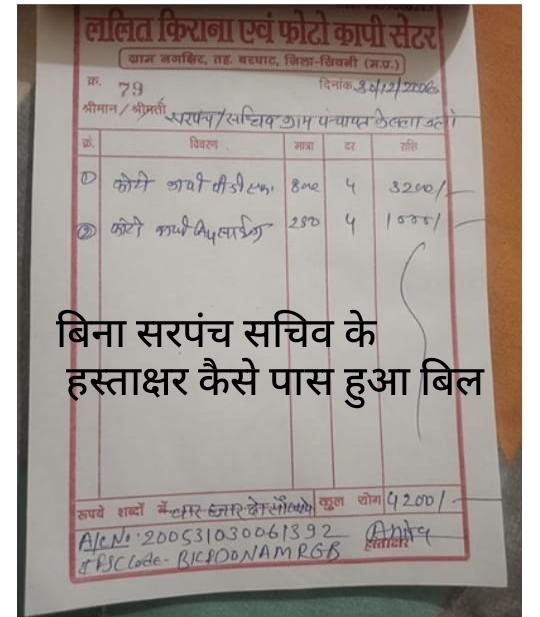 ललित किराना एवं फोटो कापी सेंटर
ग्राम नगझिर, तह. बरघाट, जिला-सिवनी (म.प्र.)
क्र. 79 दिनांक 30/12/2006
श्रीमान / श्रीमती सरपंच/सचिव ग्राम पंचायत
क्रं. विवरण मात्रा दर राशि
① फोटो कापी 800 4 3200/-
② फोटो कापी 250 4 1000/-
बिना सरपंच सचिव के
हस्ताक्षर कैसे पास हुआ बिल
रूपये शब्दों में चार हजार दो सौ कुल योग 4200/-
A/c No. 200531030061392
हस्ताक्षर
IFSC Code-